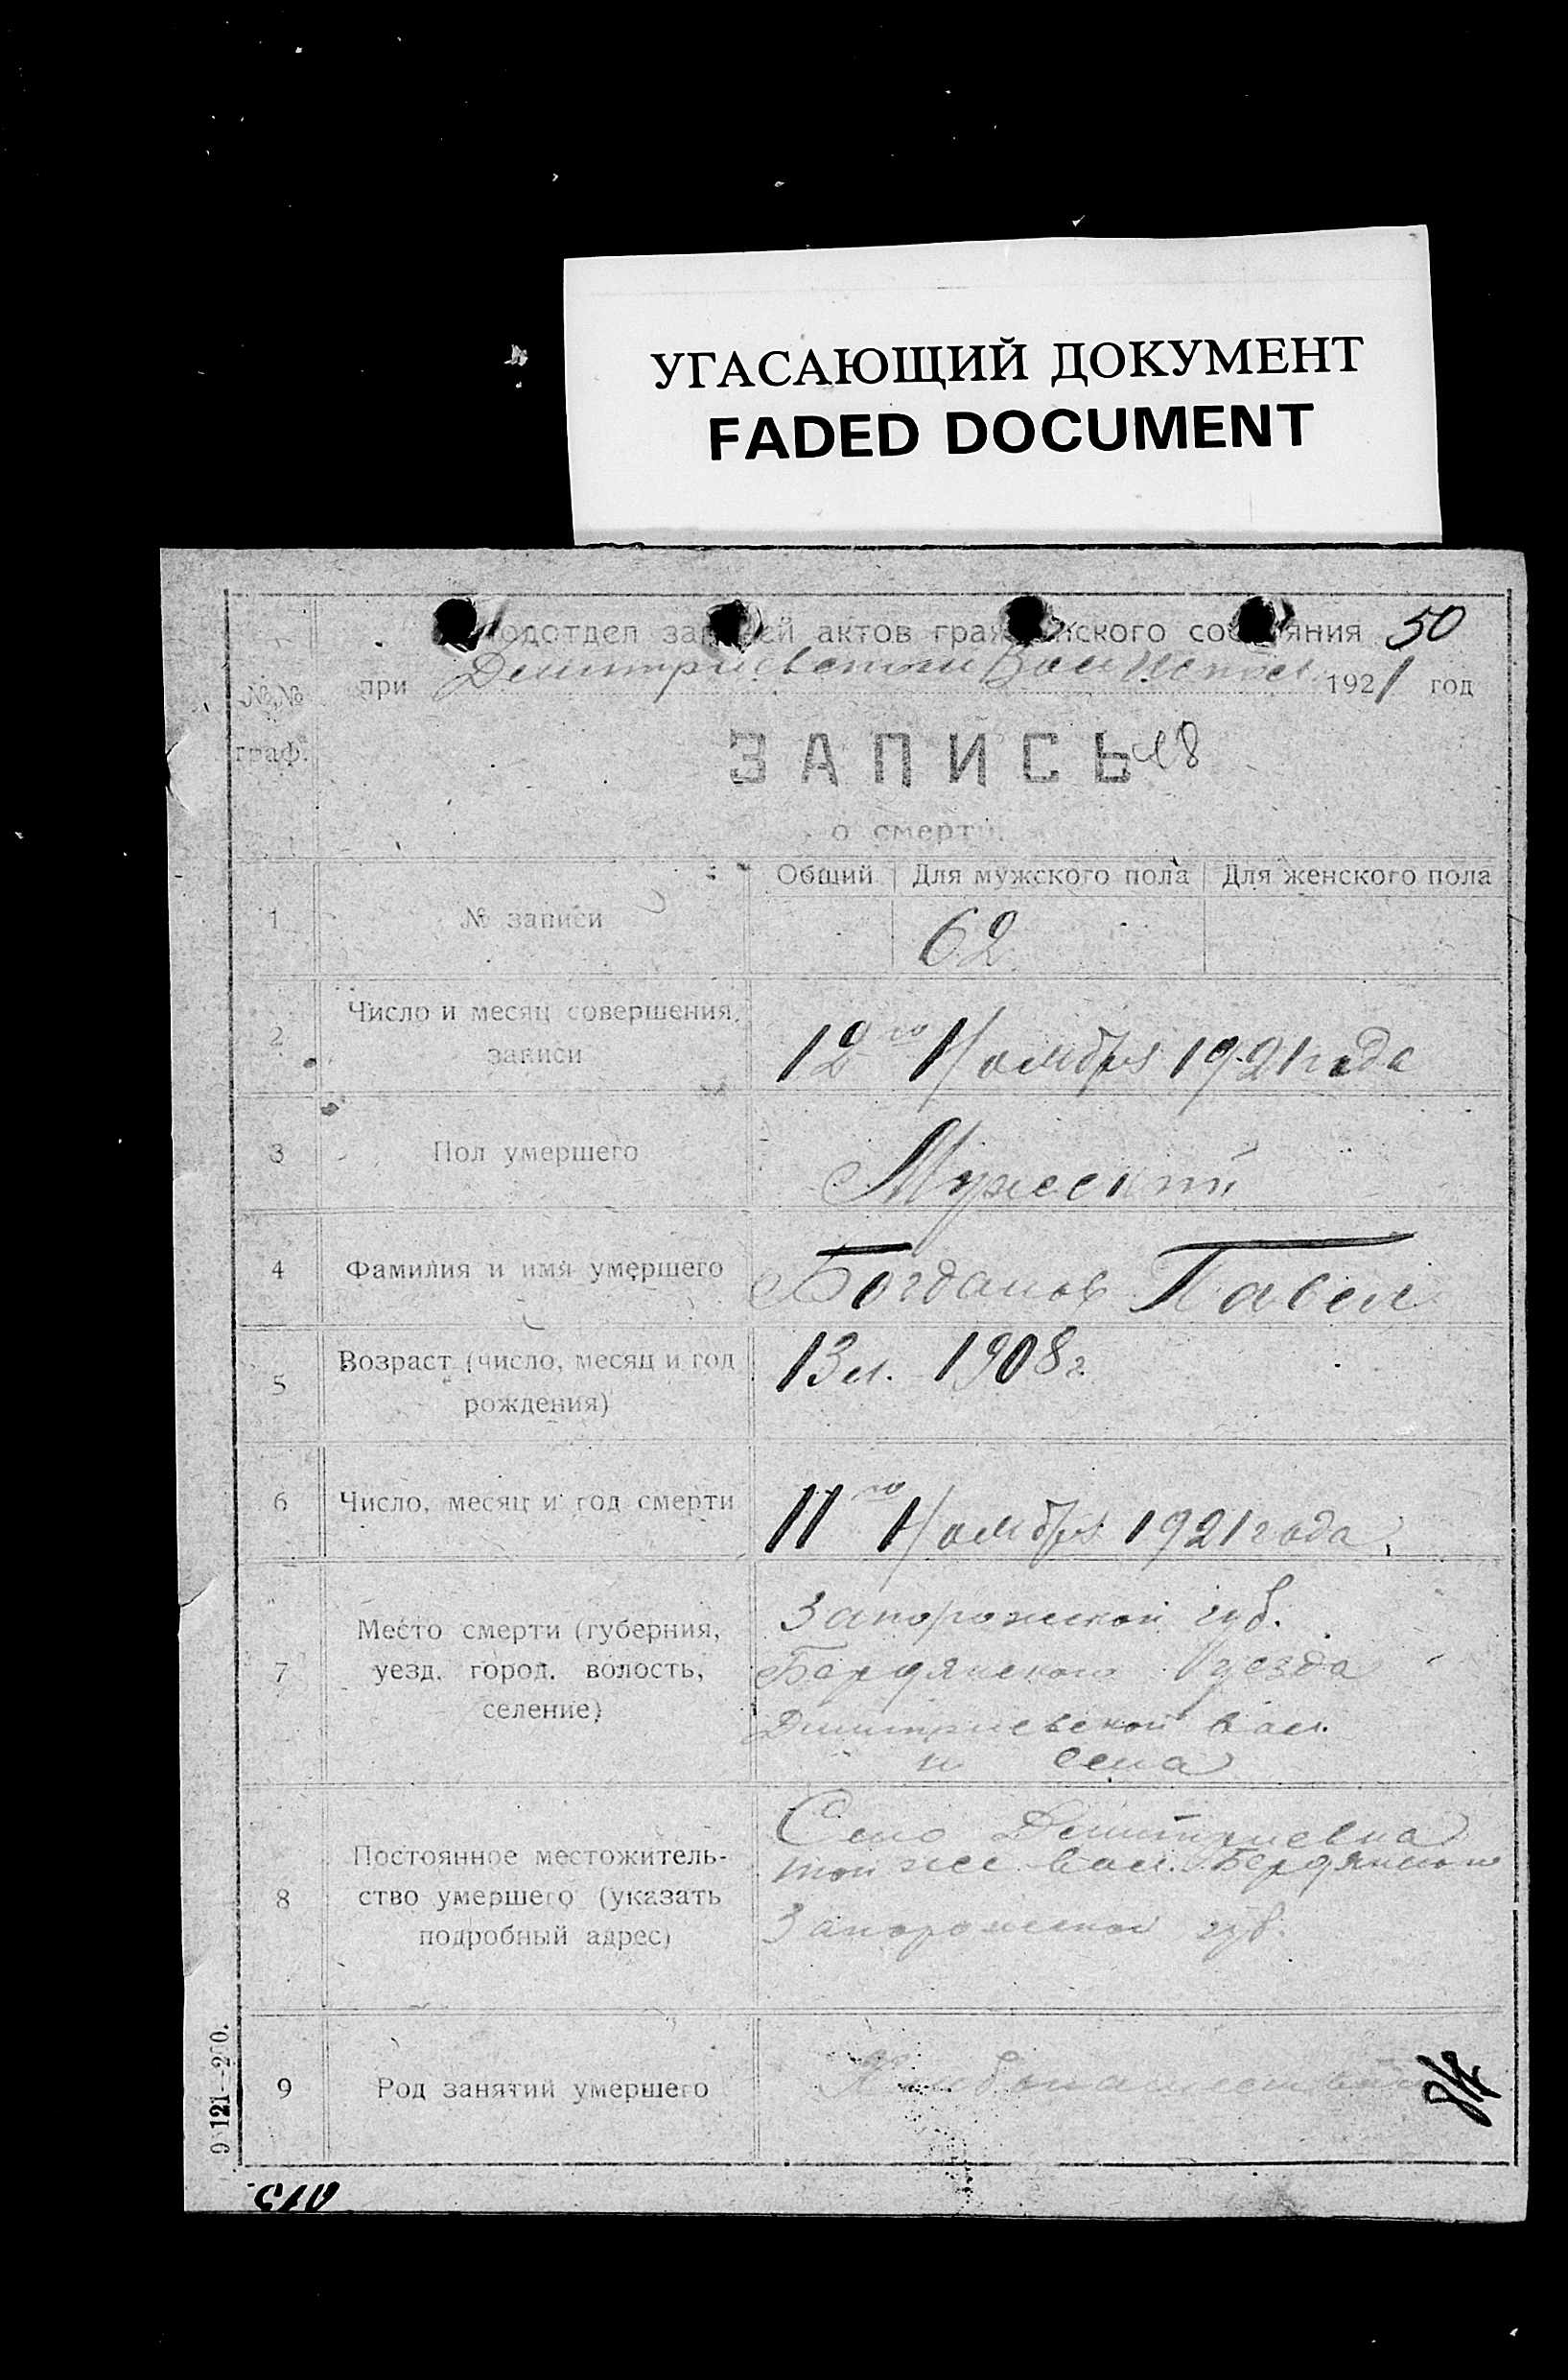 УГАСАЮЩИЙ ДОКУМЕНТ
FADED DOCUMENT
Подотдел записей актов гражданского состояния 50
при Дмитриевском Вол Исполк. 1921 год
№№
граф.
ЗАПИСЬ
о смерти.
Общий Для мужского пола Для женского пола
1 № записи 62
2 Число и месяц совершения
записи
12го Ноября 1921 года
3 Пол умершего Мужской
4 Фамилия и имя умершего Богданов Павел
5 Возраст (число, месяц и год
рождения)
13 л. 1908 г
6 Число, месяц и год смерти 11го Ноября 1921 года
7 Место смерти (губерния,
уезд, город, волость,
селение)
Запорожской губ.
Бердянского Уезда
Дмитриевской вол.
и села
8 Постоянное местожитель-
ство умершего (указать
подробный адрес)
Село Дмитриевка
той же вол. Бердянского
Запорожской губ.
9 Род занятий умершего